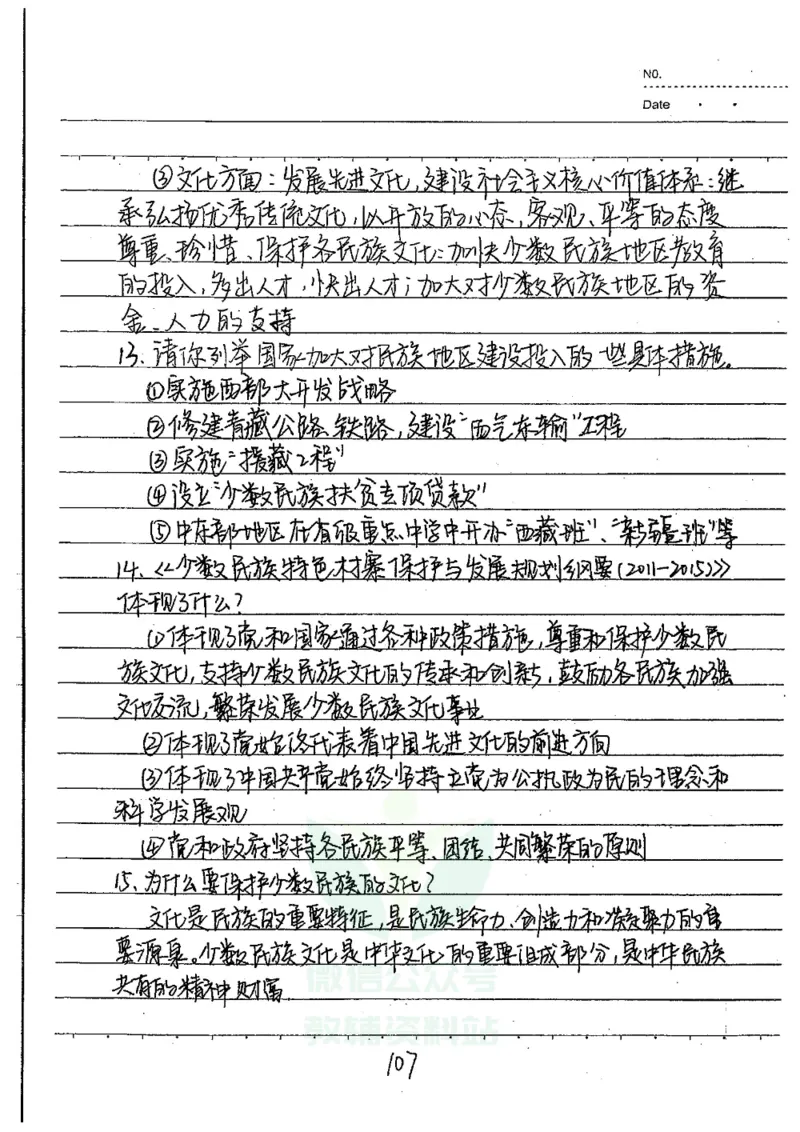 NO.
Date
③文化方面：发展先进文化，建设社会主义核心价值体系：继
承弘扬优秀传统文化，以开放的心态，客观、平等的态度
尊重、珍惜、保护各民族文化：加快少数民族地区教育
的投入，多出人才，快出人才；加大对少数民族地区的资
金、人力的支持
13、请你列举国家加大对民族地区建设投入的一些具体措施。
①实施西部大开发战略
②修建青藏公路、铁路，建设“西气东输”工程
③实施“援藏工程”
④设立“少数民族扶贫专项贷款”
⑤中东部地区在省级重点中学中开办“西藏班”、“新疆班”等
14、《少数民族特色村寨保护与发展规划纲要（2011-2015）》
体现了什么？
①体现了党和国家通过各种政策措施，尊重和保护少数民
族文化，支持少数民族文化的传承和创新，鼓励各民族加强
文化交流，繁荣发展少数民族文化事业
②体现了党始终代表着中国先进文化的前进方向
③体现了中国共产党始终坚持立党为公执政为民的理念和
科学发展观
④党和政府坚持各民族平等、团结、共同繁荣的原则
15、为什么要保护少数民族的文化？
文化是民族的重要特征，是民族生命力、创造力和凝聚力的重
要源泉。少数民族文化是中华文化的重要组成部分，是中华民族
共有的精神财富
微信公众号
教辅资料站
107